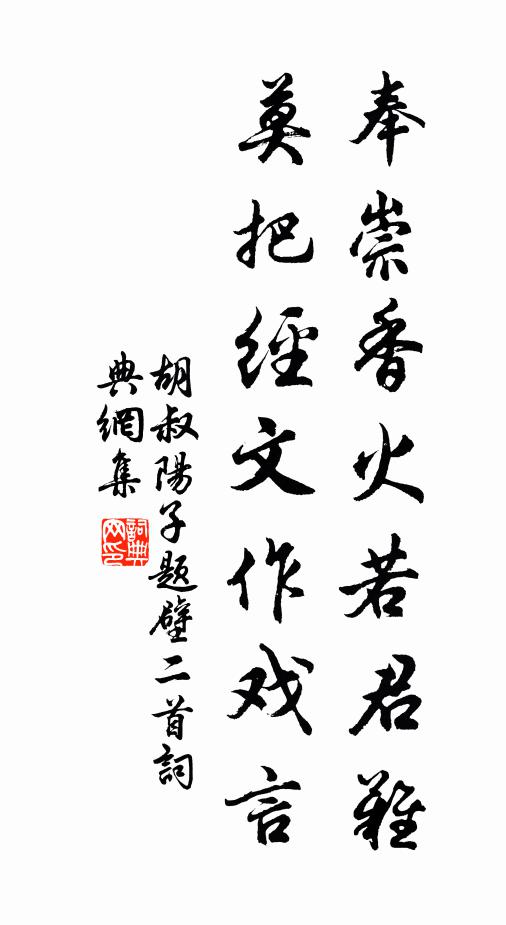 奉崇香火若君難
莫把經文作戏言
胡叔陽子题壁二首詞
典網集
詞典網印